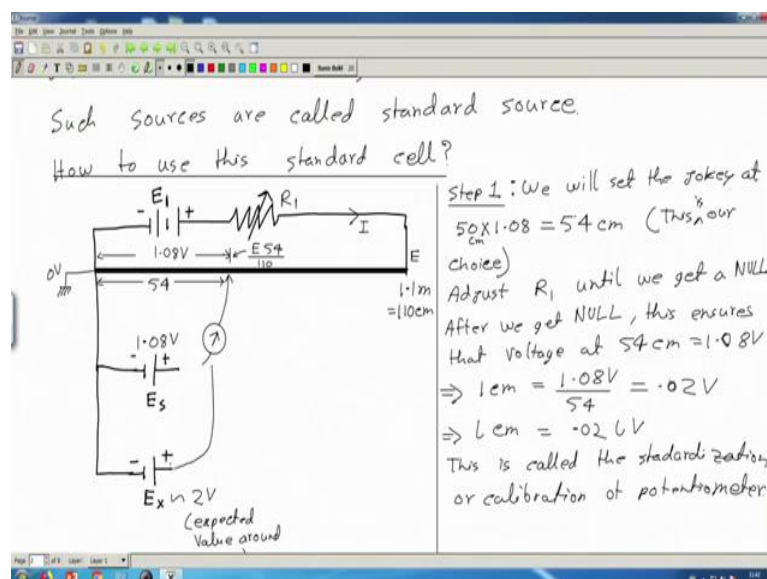 File Edit View Journal Tools Options Help
Such sources are called standard source.
How to use this standard cell?
E1
- +
R1
I
1.08V
E 54
110
E
0V
54
1.1m
=110cm
1.08V
- +
Es
- +
Ex ~ 2V
(expected
value around
Step 1 : We will set the jokey at
50 x 1.08 = 54 cm (This is our
cm
choice)
Adjust R1 until we get a NULL
After we get NULL, this ensures
that voltage at 54 cm = 1.08V
⇒ 1cm = 1.08V = .02V
54
⇒ l cm = .02 l V
This is called the stadardization
or calibration of potentiometer
Page 2 of 8 Layer: Layer 1